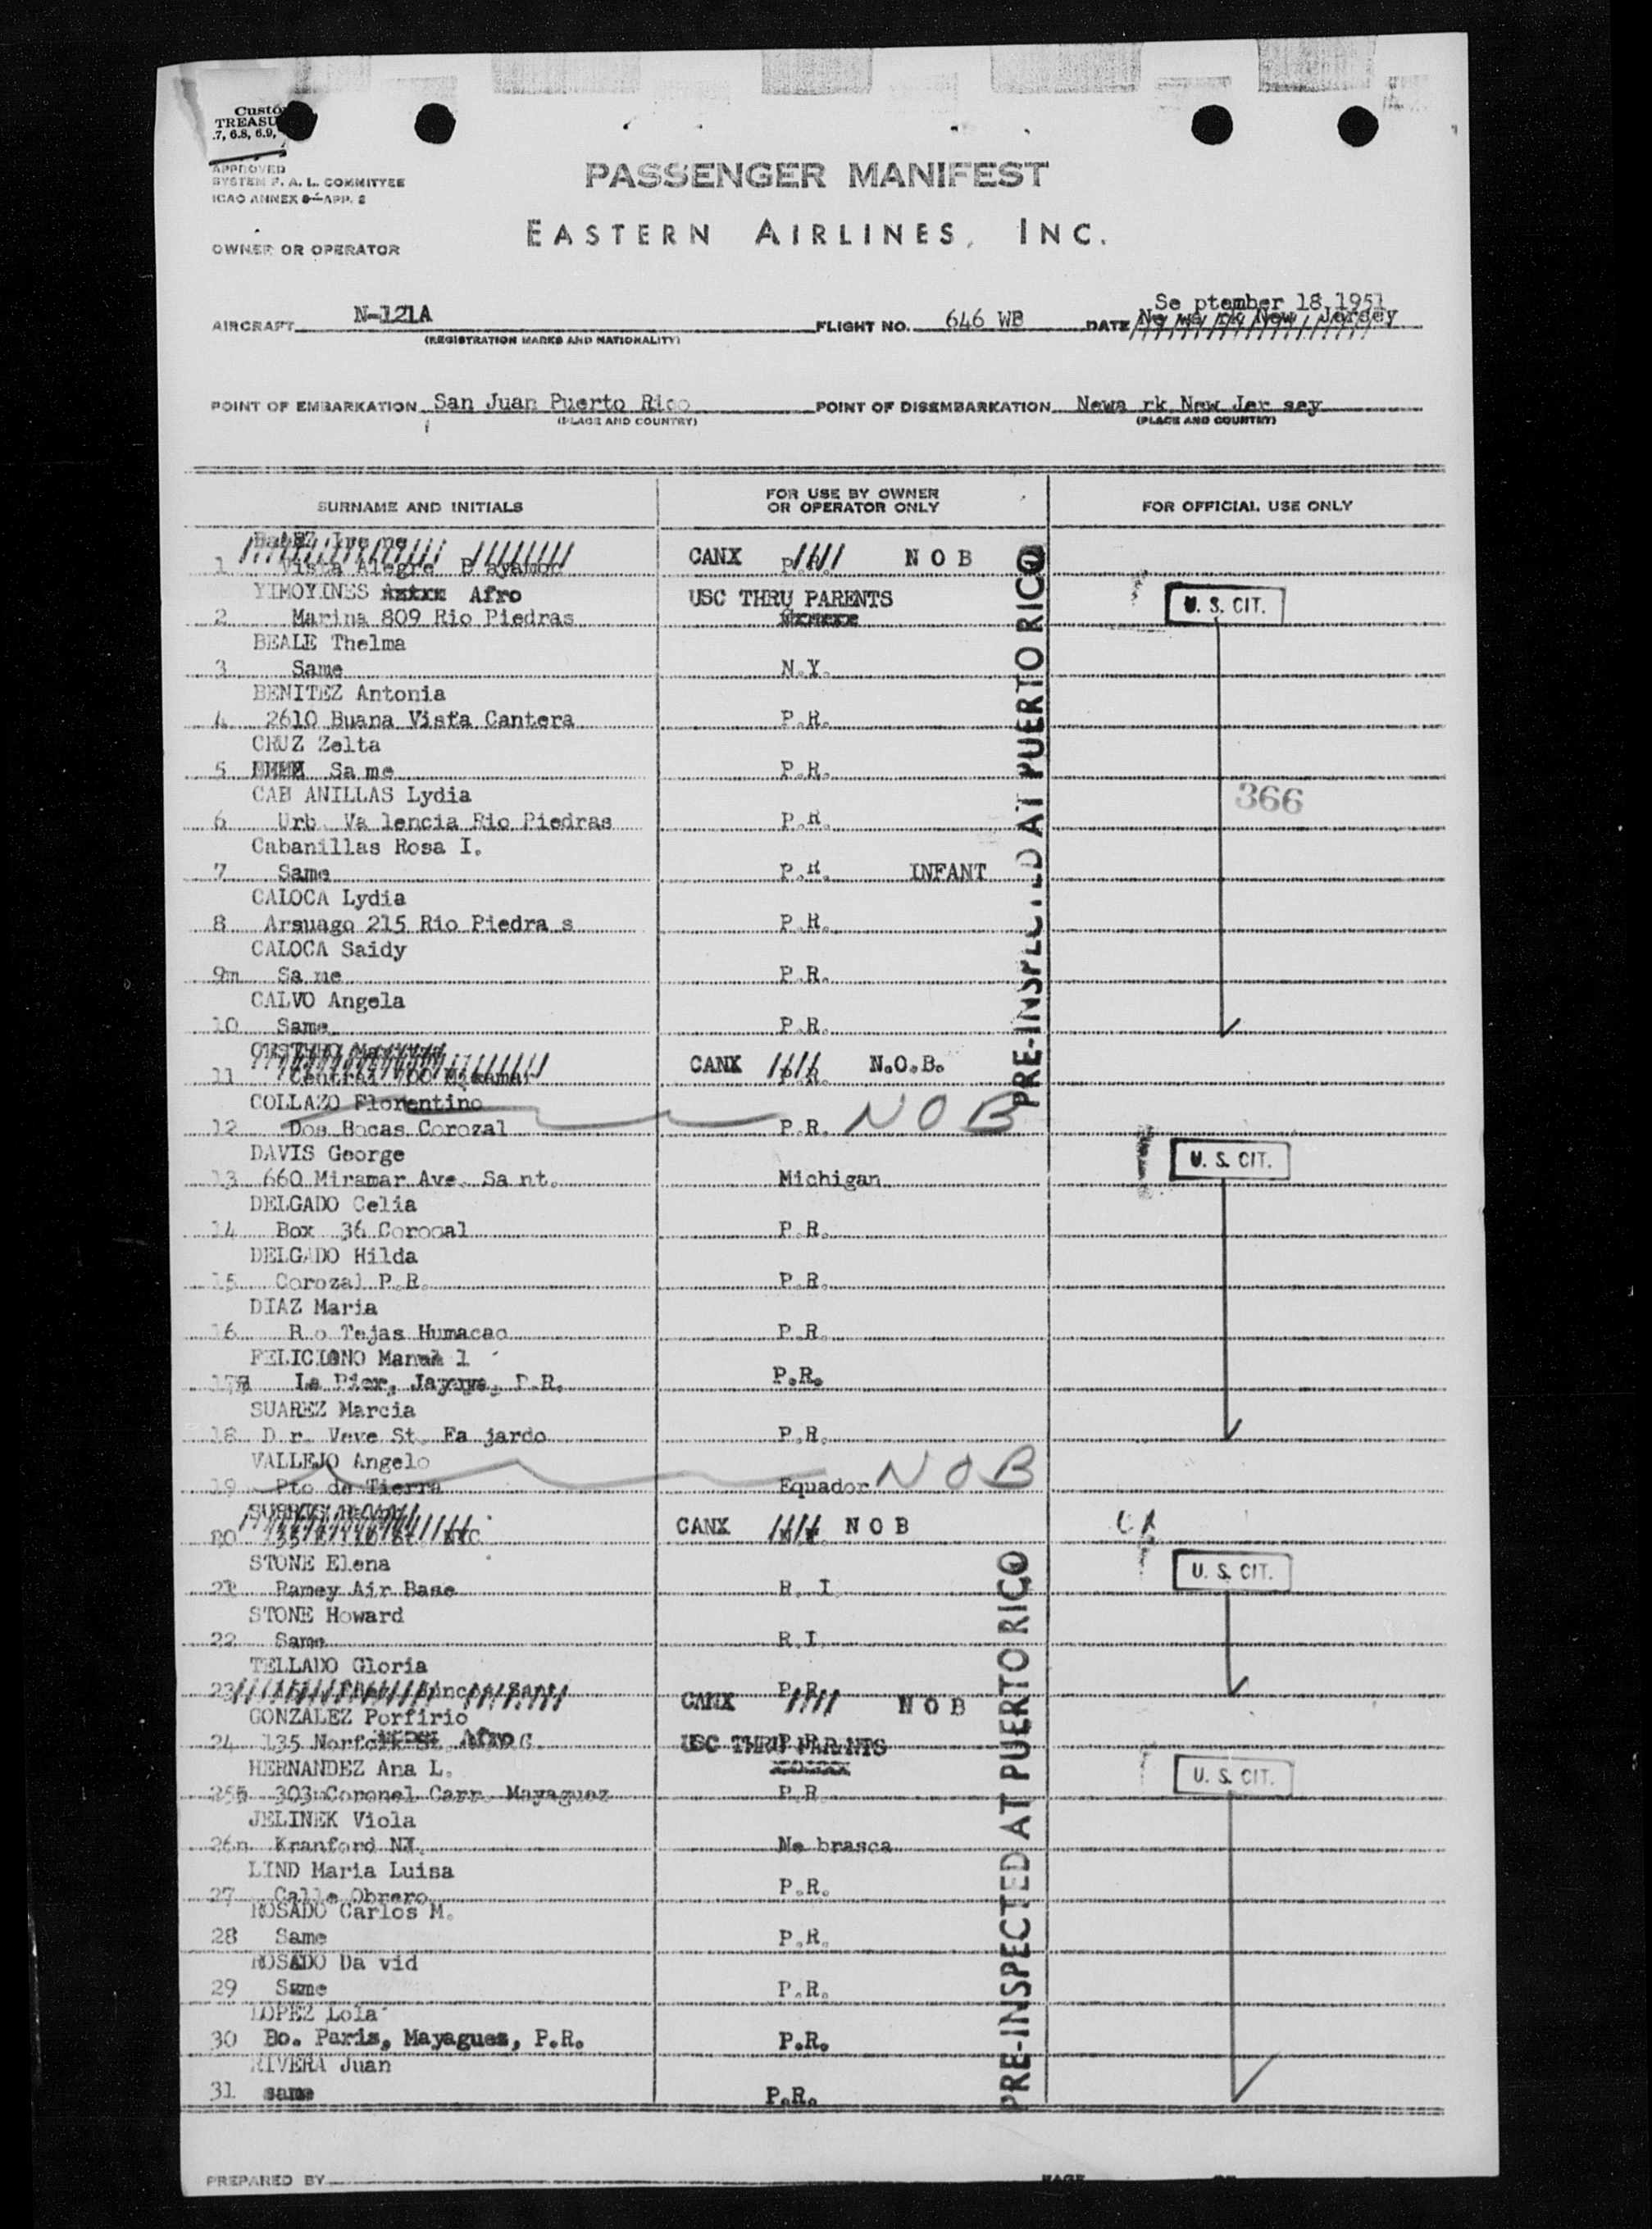 Custo
TREASU
.7, 6.8, 6.9,
APPROVED
SYSTEM F. A. L. COMMITTEE
ICAO ANNEX 9-APP. 2
PASSENGER MANIFEST
EASTERN AIRLINES, INC.
OWNER OR OPERATOR
Se ptember 18,1951
AIRCRAFT N-121A FLIGHT NO. 646 WB DATE Ne wa rk New Jersey
(REGISTRATION MARKS AND NATIONALITY)
POINT OF EMBARKATION San Juan Puerto Rico POINT OF DISEMBARKATION Newa rk New Jer sey
(PLACE AND COUNTRY) (PLACE AND COUNTRY)
SURNAME AND INITIALS FOR USE BY OWNER OR OPERATOR ONLY FOR OFFICIAL USE ONLY
1 Vista Alegre B ayamon CANX P.R. N O B
YIMOYINES Afro USC THRU PARENTS
2 Marina 809 Rio Piedras U. S. CIT.
BEALE Thelma
3 Same N.Y.
BENITEZ Antonia
4 2610 Buana Vista Cantera P.R.
CRUZ Zelta
5 Sa me P.R.
CAB ANILLAS Lydia
366
6 Urb. Va lencia Rio Piedras P.R.
Cabanillas Rosa I.
7 Same P.R. INFANT
CALOCA Lydia
8 Arsuago 215 Rio Piedra s P.R.
CALOCA Saidy
9m Sa me P.R.
CALVO Angela
10 Same P.R.
PRE-INSPECTED AT PUERTO RICO
11 Central 700 Miramar CANX P.R. N.O.B.
COLLAZO Florentino
12 Dos Bocas Corozal P.R. NOB
DAVIS George
13 660 Miramar Ave. Sa nt. Michigan U. S. CIT.
DELGADO Celia
14 Box 36 Corooal P.R.
DELGADO Hilda
15 Corozal P.R. P.R.
DIAZ Maria
16 R.o Tejas Humacao P.R.
FELICIONO Manua l
17 La Picr, Jayuya, P.R. P.R.
SUAREZ Marcia
18 D r. Veve St. Fa jardo P.R.
VALLEJO Angelo
19 Pto de Tierra Equador NOB
20 CANX N O B
STONE Elena
21 Ramey Air Base R. I. U. S. CIT.
STONE Howard
22 Same R.I.
TELLADO Gloria
23 P.R. CANX N O B
GONZALEZ Porfirio
24 135 Norfolk St. Afro USC THRU PARENTS
HERNANDEZ Ana L. U. S. CIT.
25 303 Coronel Carr. Mayaguez P.R.
JELINEK Viola
26n Kranford NJ. Ne brasca
LIND Maria Luisa
27 Calle Obrero P.R.
ROSADO Carlos M.
28 Same P.R.
ROSADO Da vid
29 Same P.R.
LOPEZ Lola
30 Bo. Paris, Mayaguez, P.R. P.R.
RIVERA Juan
31 same P.R.
PRE-INSPECTED AT PUERTO RICO
PREPARED BY PAGE OF